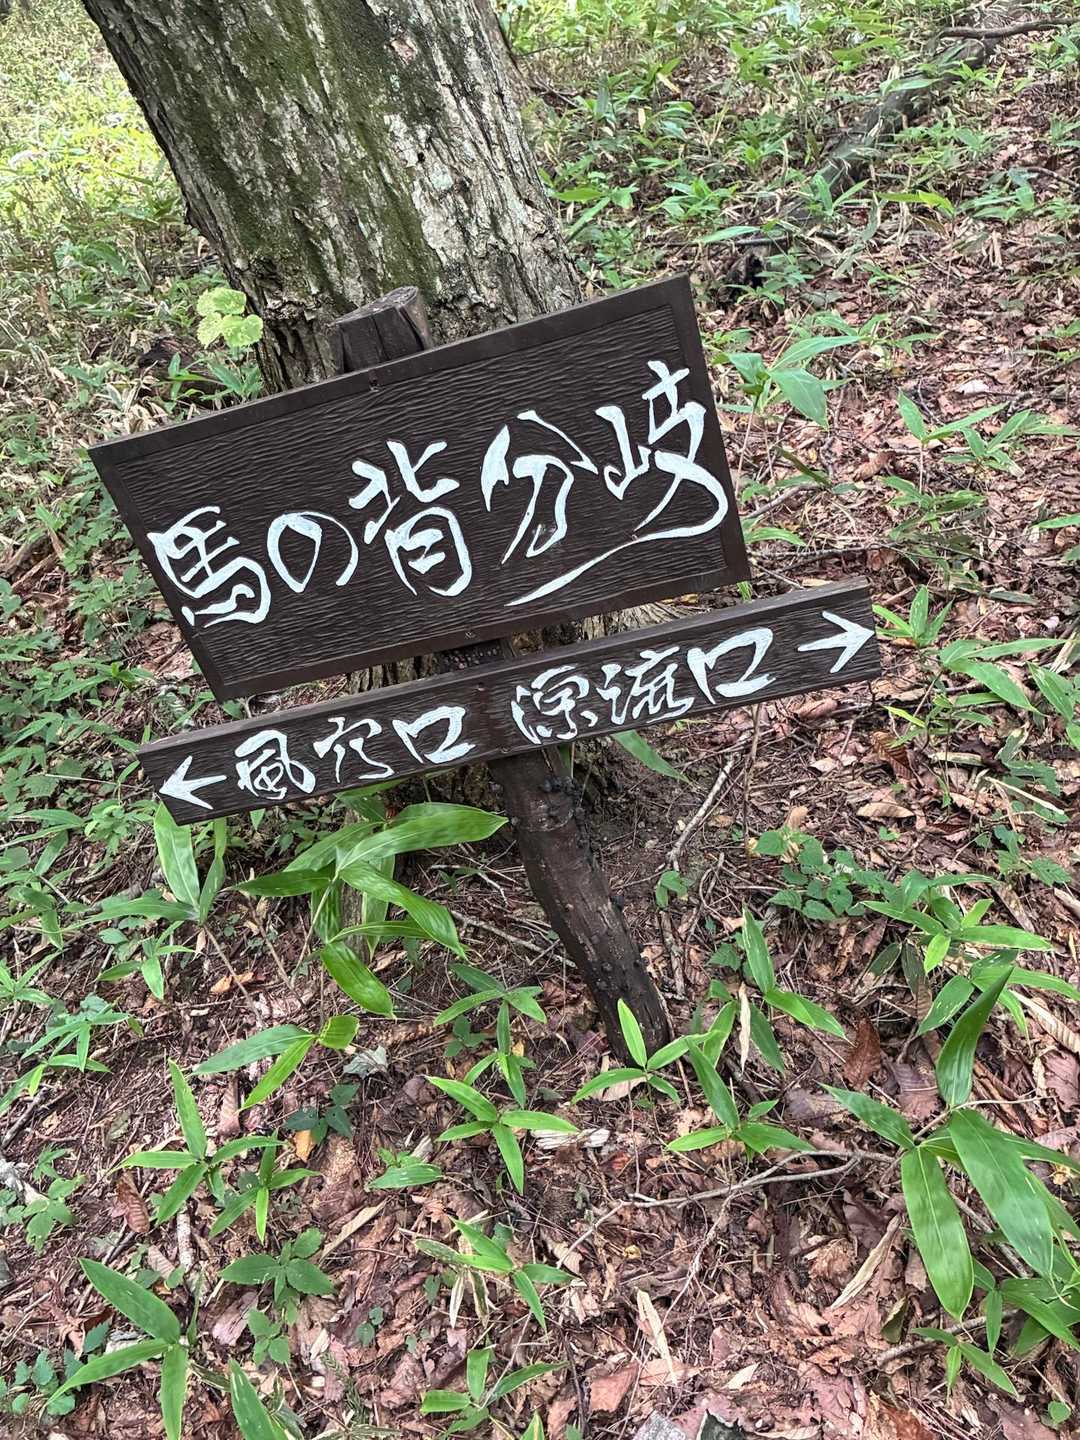 馬の背分岐
←風穴口 深流口→